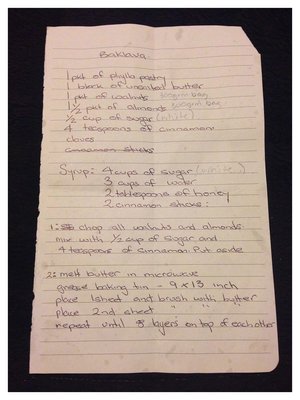 Baklava
1 pkt of phyllo pastry
1 block of unsalted butter
1 pkt of walnuts 500grm bag
1 1/2 pkt of almonds 500grm bag
1/2 cup of sugar (white)
4 teaspoons of cinnamon
cloves
cinnamon sticks
Syrup: 4 cups of sugar (white)
3 cups of water
2 tablespoons of honey
2 cinnamon sticks:
1: chop all walnuts and almonds
mix with 1/2 cup of sugar and
4 teaspoons of cinnamon. Put aside
2: melt butter in microwave
grease baking tin - 9 x 13 inch
place 1 sheet and brush with butter
place 2nd sheet " " "
repeat until 8 layers on top of each other